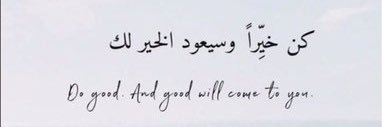 كن خيِّراً وسيعود الخير لك
Do good. And good will come to you.